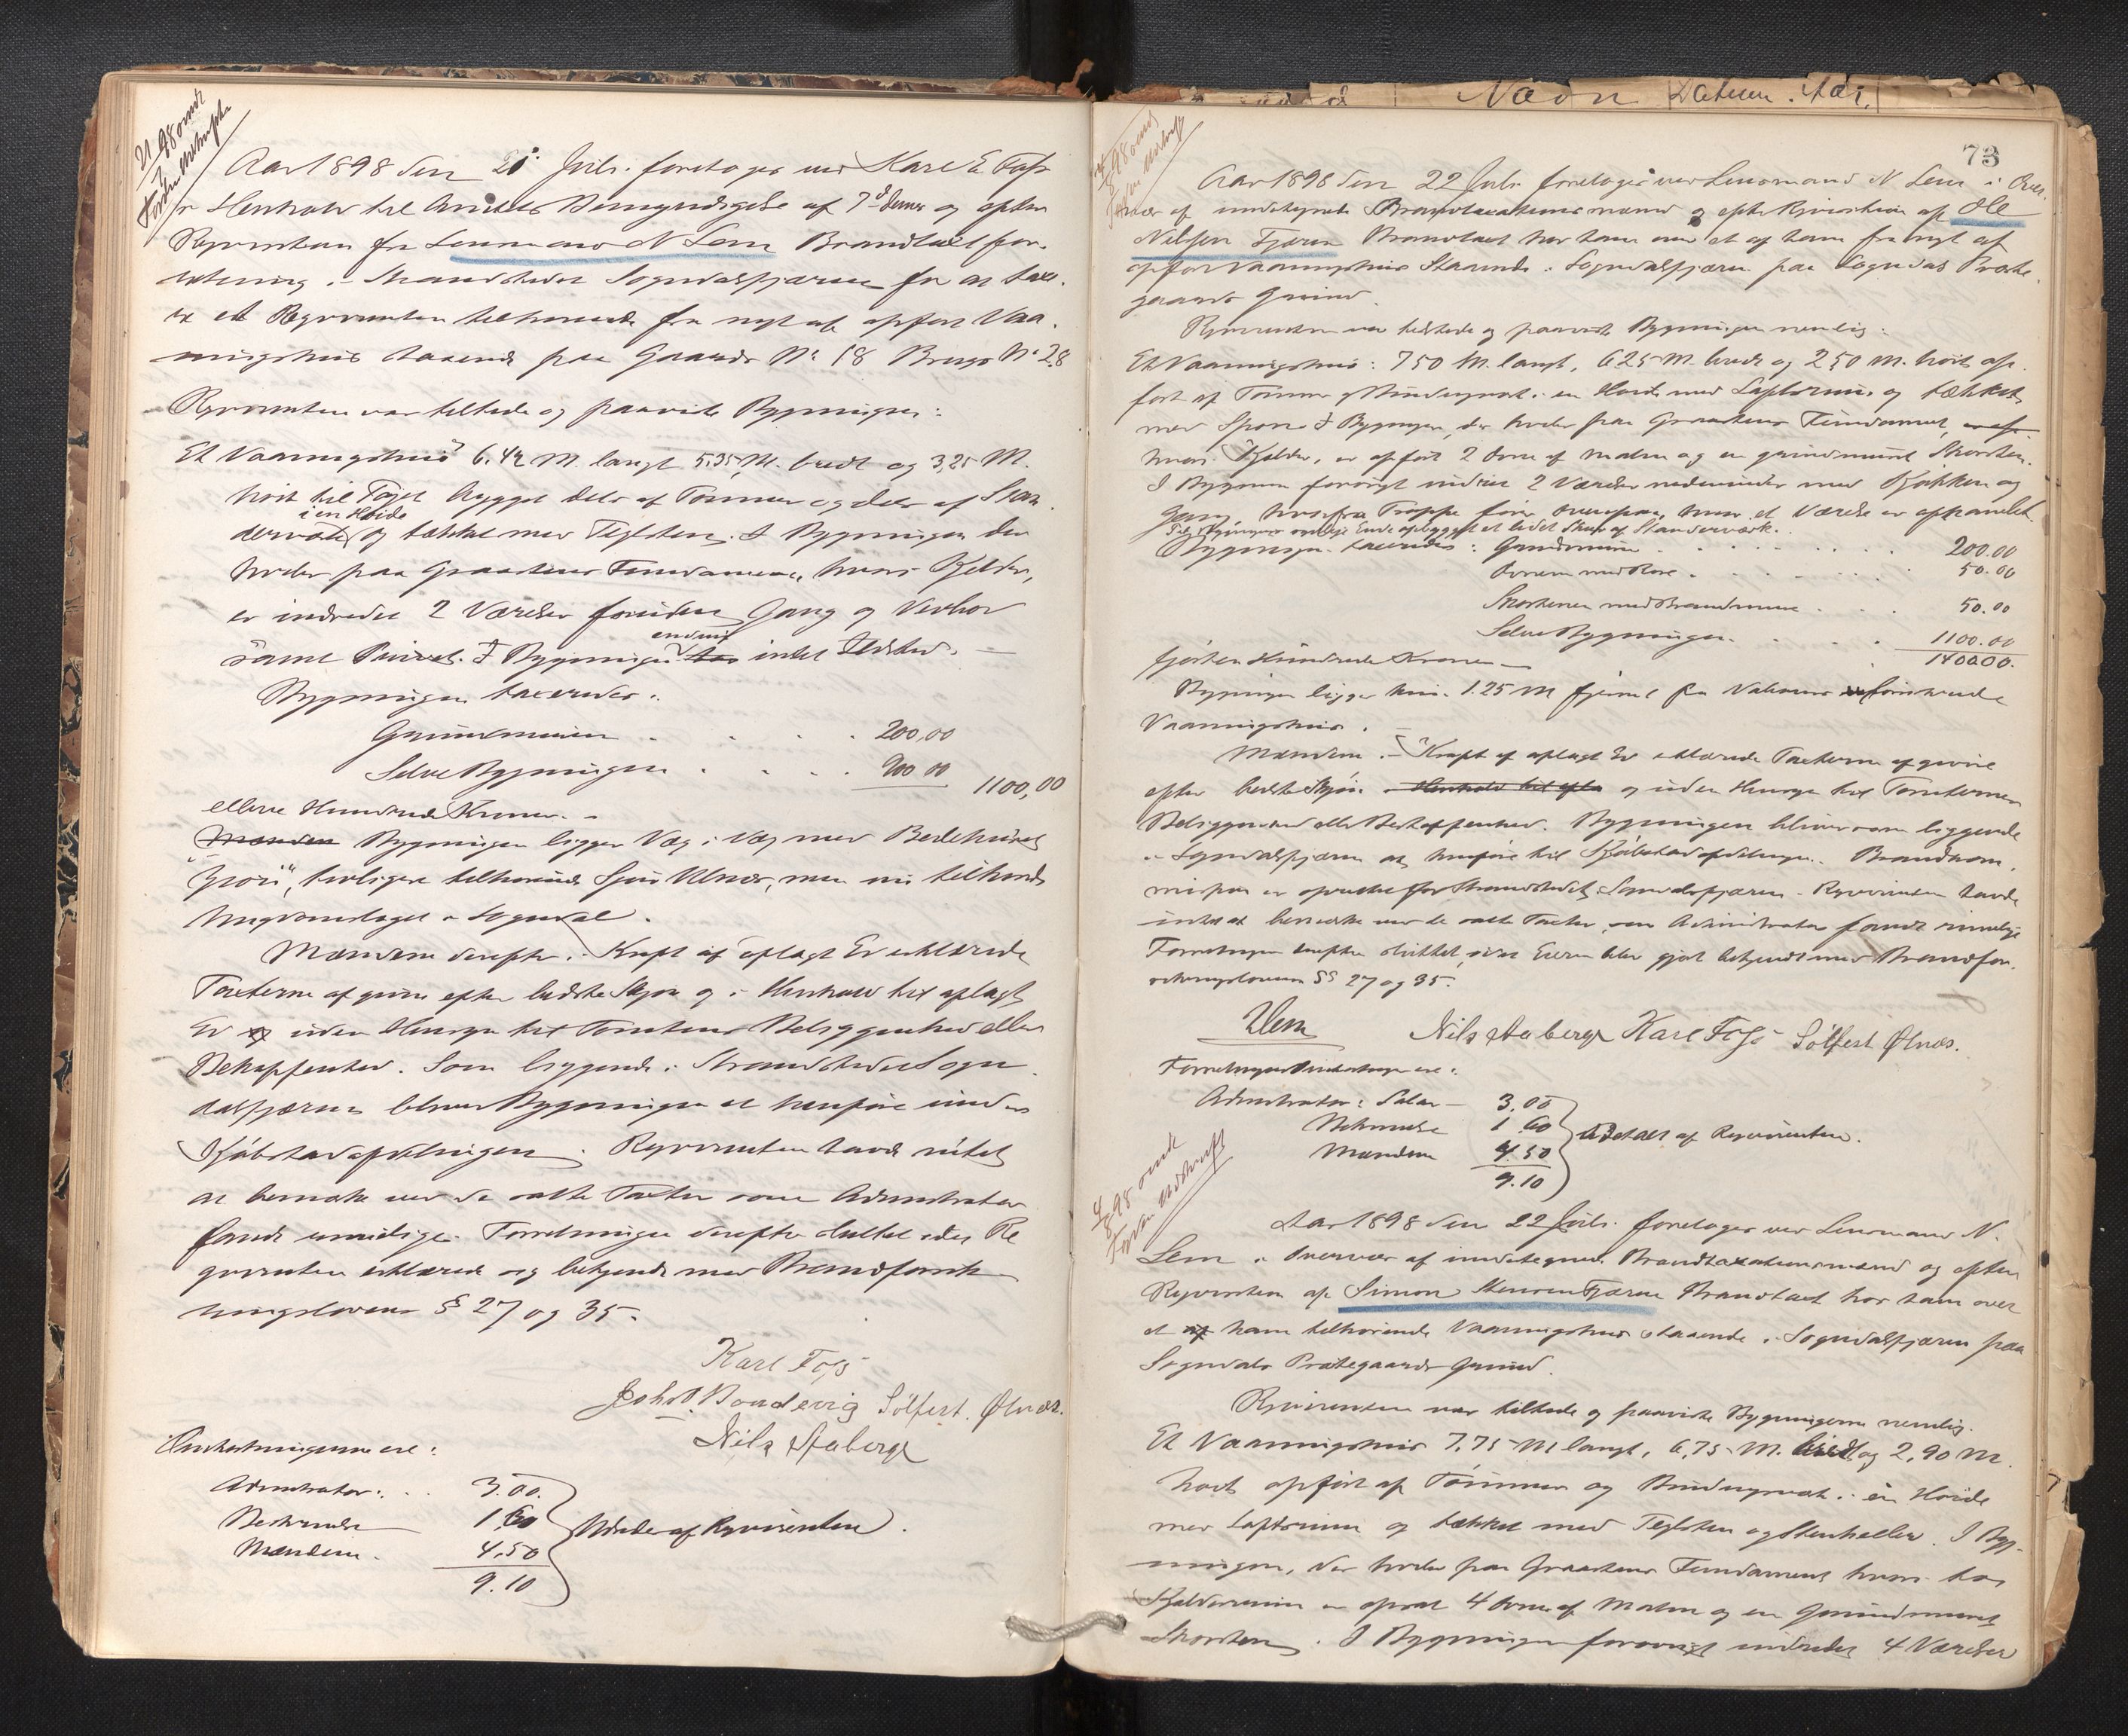 21/7 98 omb
Forlm Udskrift
Aar 1898 den 21. Juli. foretoges ved Karl E Foss
i Henhold til Amtets Bemyndigelse af 7de dennes og efter
Reqvisition fra Lensmand N Lem Brandtaxtfor-
retning i Strandstedet Sogndalsfjæren for at taxe-
re et Reqvirenten tilhørende fra nyt af opført Vaa-
ningshus staaende paa Gaards No 18 Brugs No 28
Reqvirenten var tilstede og paaviste Bygningen:
Et Vaaningshus 6,42 M. langt 5,35 M. bredt og 3,25 M.
høit til Taget bygget dels af Tømmer og dels af Stan-
i en Høide
derværk og tækket med Teglsten. I Bygningen der
hviler paa Graastens Fundament, hvori Kjelder,
er indredet 2 Værelser foruden Gang og Vedbod
samt Privet. I Bygningen endnu intet Ildsted. —
Bygningen taxeredes:
Grundmuren . . . . 200,00
Selve Bygningen . . . . 900 00
1100,00
elleve Hundrede Kroner. –
Manden Bygningen ligger Væg i Væg med Bedehuset
"Zion", tidligere tilhørende Sjur Ulnæs, men nu tilhørende
Ungdomslaget i Sogndal.
Mændene derefter i Kraft af aflagt Ed erklærede
Taxterne afgivne efter bedste Skjøn og i Henhold til aflagt
Ed og uden Hensyn til Tomtens Beliggenhed eller
Beskaffenhed. Som liggende i Strandstedet Sogn-
dalsfjæren bliver Bygningen at henføre under
Kjøbstadafdelingen. Reqvirenten havde intet
at bemærke ved de satte Taxter som Administrator
fandt rimelige. Forretningen derefter sluttet idet Re-
qvirenten erklærede sig bekjendt med Brandforsik-
ringslovens § 27 og 35.
Karl Foss
Joh. P. Bondevig Sölfest. Ølnæs.
Nils Staberge
Omkostningerne ere:
Administrator: . . 3.00.
Beskrivelse 1 60
Mændene. 4.50
9.10
Udredes af Reqvirenten.
Nævn Datum. Aar.
73
98 omb
Aar 1898 den 22 Juli foretoges ved Lensmand N Lem i Over-
vær af undertegnede Brandtaxationsmænd og efter Reqvisition af Ole
Nilssen Fjæren Brandtaxt hos ham over et af ham fra nyt af
opført Vaaningshus staaende i Sogndalsfjæren paa Sogndals Præste-
gaards Grund.
Reqvirenten var tilstede og paaviste Bygningen nemlig:
Et Vaaningshus: 750 M. langt, 625 M. bredt og 250 M. høit op-
ført af Tømmer og Bindingsverk i en Høide med Loftsrum og tækket
med Spon. I Bygningen, der hviler paa Graastens Fundament,
hvori Kjelder, er opført 2 Ovne af Malm og en grundmuret Skorsten.
I Bygningen forøvrigt indredet 2 Værelser nedenunder med Kjøkken og
Gang hvorfra Trappe fører ovenpaa, hvor et Værelse er oppanelet.
Til Bygningens Ende opbygget et lidet Skur af Standerværk.
Bygningen taxeredes: Grundmuren . . . . 200.00
Ovnene med Rør . . . . 50.00
Skorstenen med Brandmure . . . 50.00
Selve Bygningen . . . 1100.00
fjorten Hundrede Kroner — 1400.00.
Bygningen ligger kun 1.25 M fjernet fra Naboens
Vaaningshus. –
Mændene i Kraft af aflagt Ed erklærede Taxterne afgivne
efter bedste Skjøn i Henhold til efter og uden Hensyn til Tomternes
Beliggenhed eller Beskaffenhed. Bygningen bliver som liggende
i Sogndalsfjæren at henføre til Kjøbstadafdelingen. Brandkom-
mission er oprettet for Strandstedet Sogndalsfjæren. Reqvirenten havde
intet at bemærke ved de satte Taxter, som Administrator fandt rimelige
Forretningen derefter sluttet, idet Eieren blev gjort bekjendt med Brandfor-
sikringslovens §§ 27 og 35.
NLem Nils Staberge Karl Foss Sölfest Ølnæs.
Forretningens Omkostninger ere:
Administrator: Salar — 3.00
Beskrivelse 1 60
Mændene 4.50
9.10
Udredes af Reqvirenten.
4/8 98 omb
Forlm Udskrift
Aar 1898 den 22 Juli. foretoges ved Lensmand N.
Lem i Overvær af undertegnede Brandtaxationsmænd og efter
Reqvisition af Simon Stensen Fjæren Brandtaxt hos ham over
et af ham tilhørende Vaaningshus staaende i Sogndalsfjæren paa
Sogndals Præstegaards Grund.
Reqvirenten var tilstede og paaviste Bygningerne nemlig.
Et Vaaningshus 7.75 M langt, 6,75 M. bredt og 2,90 M.
høit opført af Tømmer og Bindingsværk i en Høide
med Loftsrum og tækket med Teglsten og Stenheller. I Byg-
ningen, der hviler paa Graastens Fundament hvori der
Kjelderrum er opsat 4 Ovne af Malm og en Grundmuret
Skorsten. I Bygningen forøvrigt indredet 4 Værelser